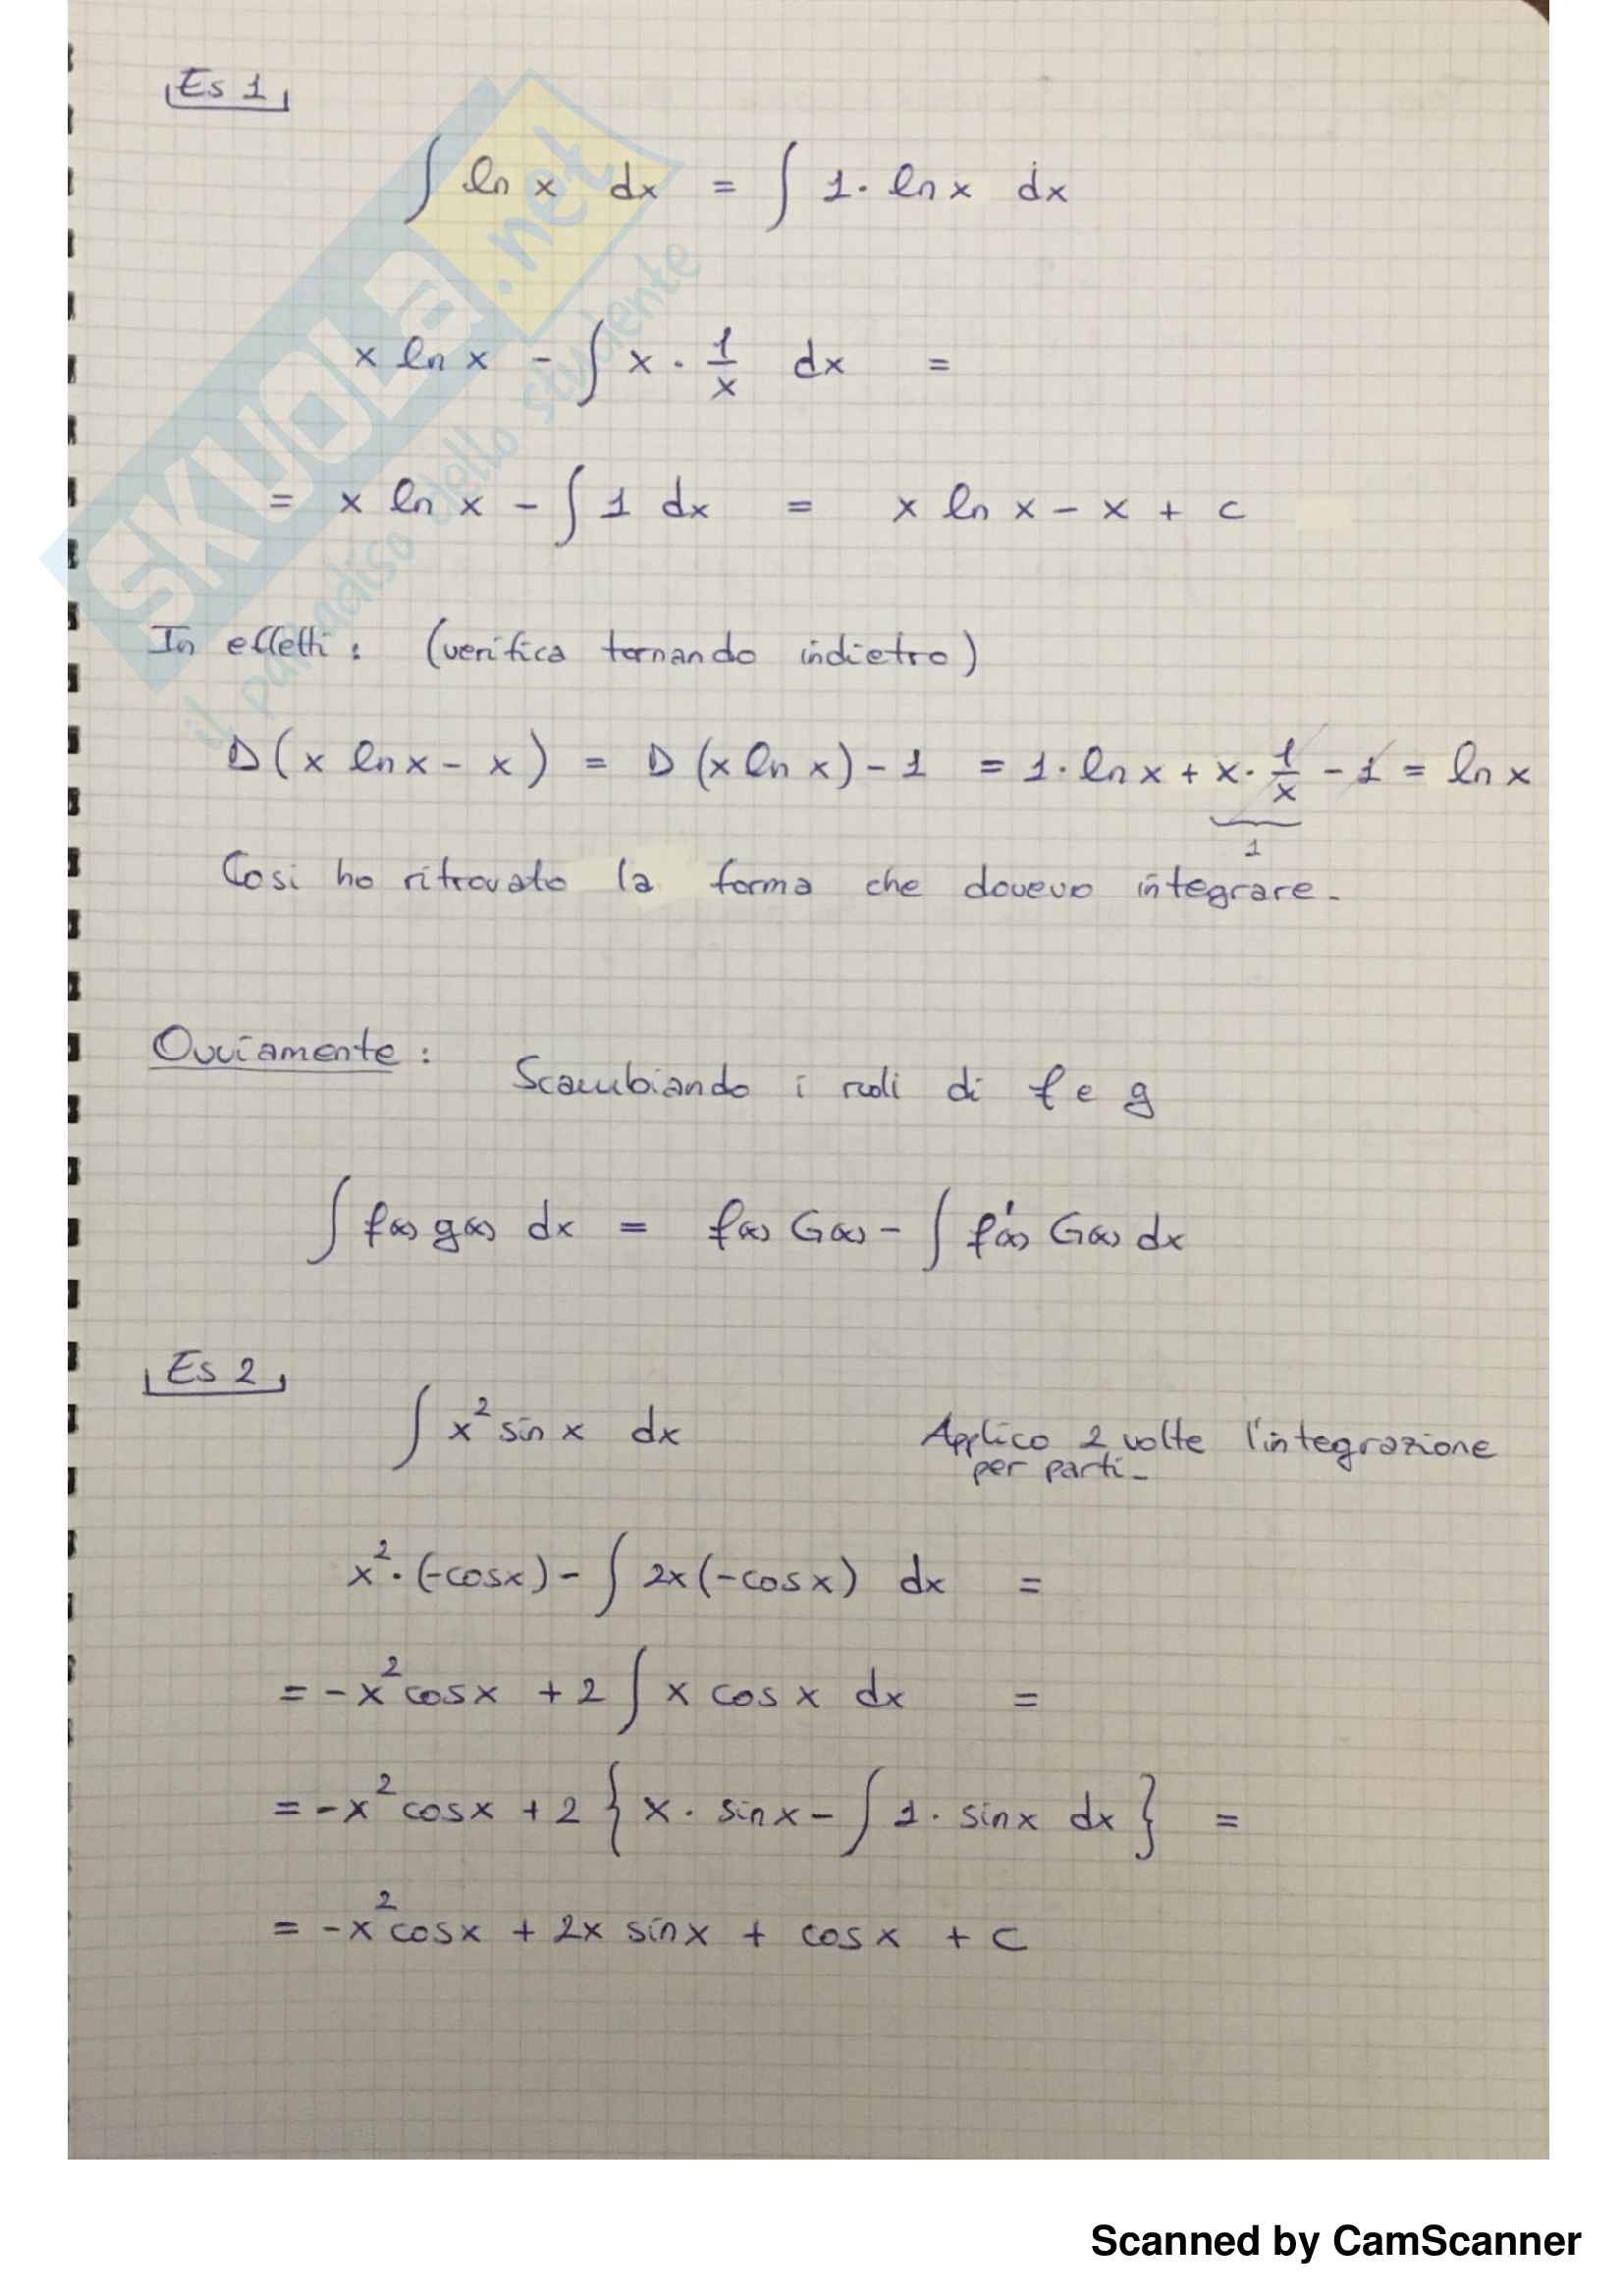 Es 1
∫ ln x dx = ∫ 1· ln x dx
x ln x - ∫ x · 1/x dx =
= x ln x - ∫ 1 dx = x ln x - x + c
In effetti : (verifica tornando indietro)
D(x ln x - x) = D(x ln x) - 1 = 1· ln x + x· 1/x - 1 = ln x
1
Cosi ho ritrovato la forma che dovevo integrare.
Ovviamente :
Scambiando i ruoli di f e g
∫ f(x) g(x) dx = f(x) G(x) - ∫ f'(x) G(x) dx
Es 2
∫ x² sin x dx Applico 2 volte l'integrazione
per parti.
x² · (-cosx) - ∫ 2x(-cosx) dx =
= -x² cosx + 2 ∫ x cos x dx =
= -x² cosx + 2 { x · sinx - ∫ 1 · sinx dx } =
= -x² cosx + 2x sinx + cosx + C
SKUOLA.net
il paradiso dello studente
Scanned by CamScanner